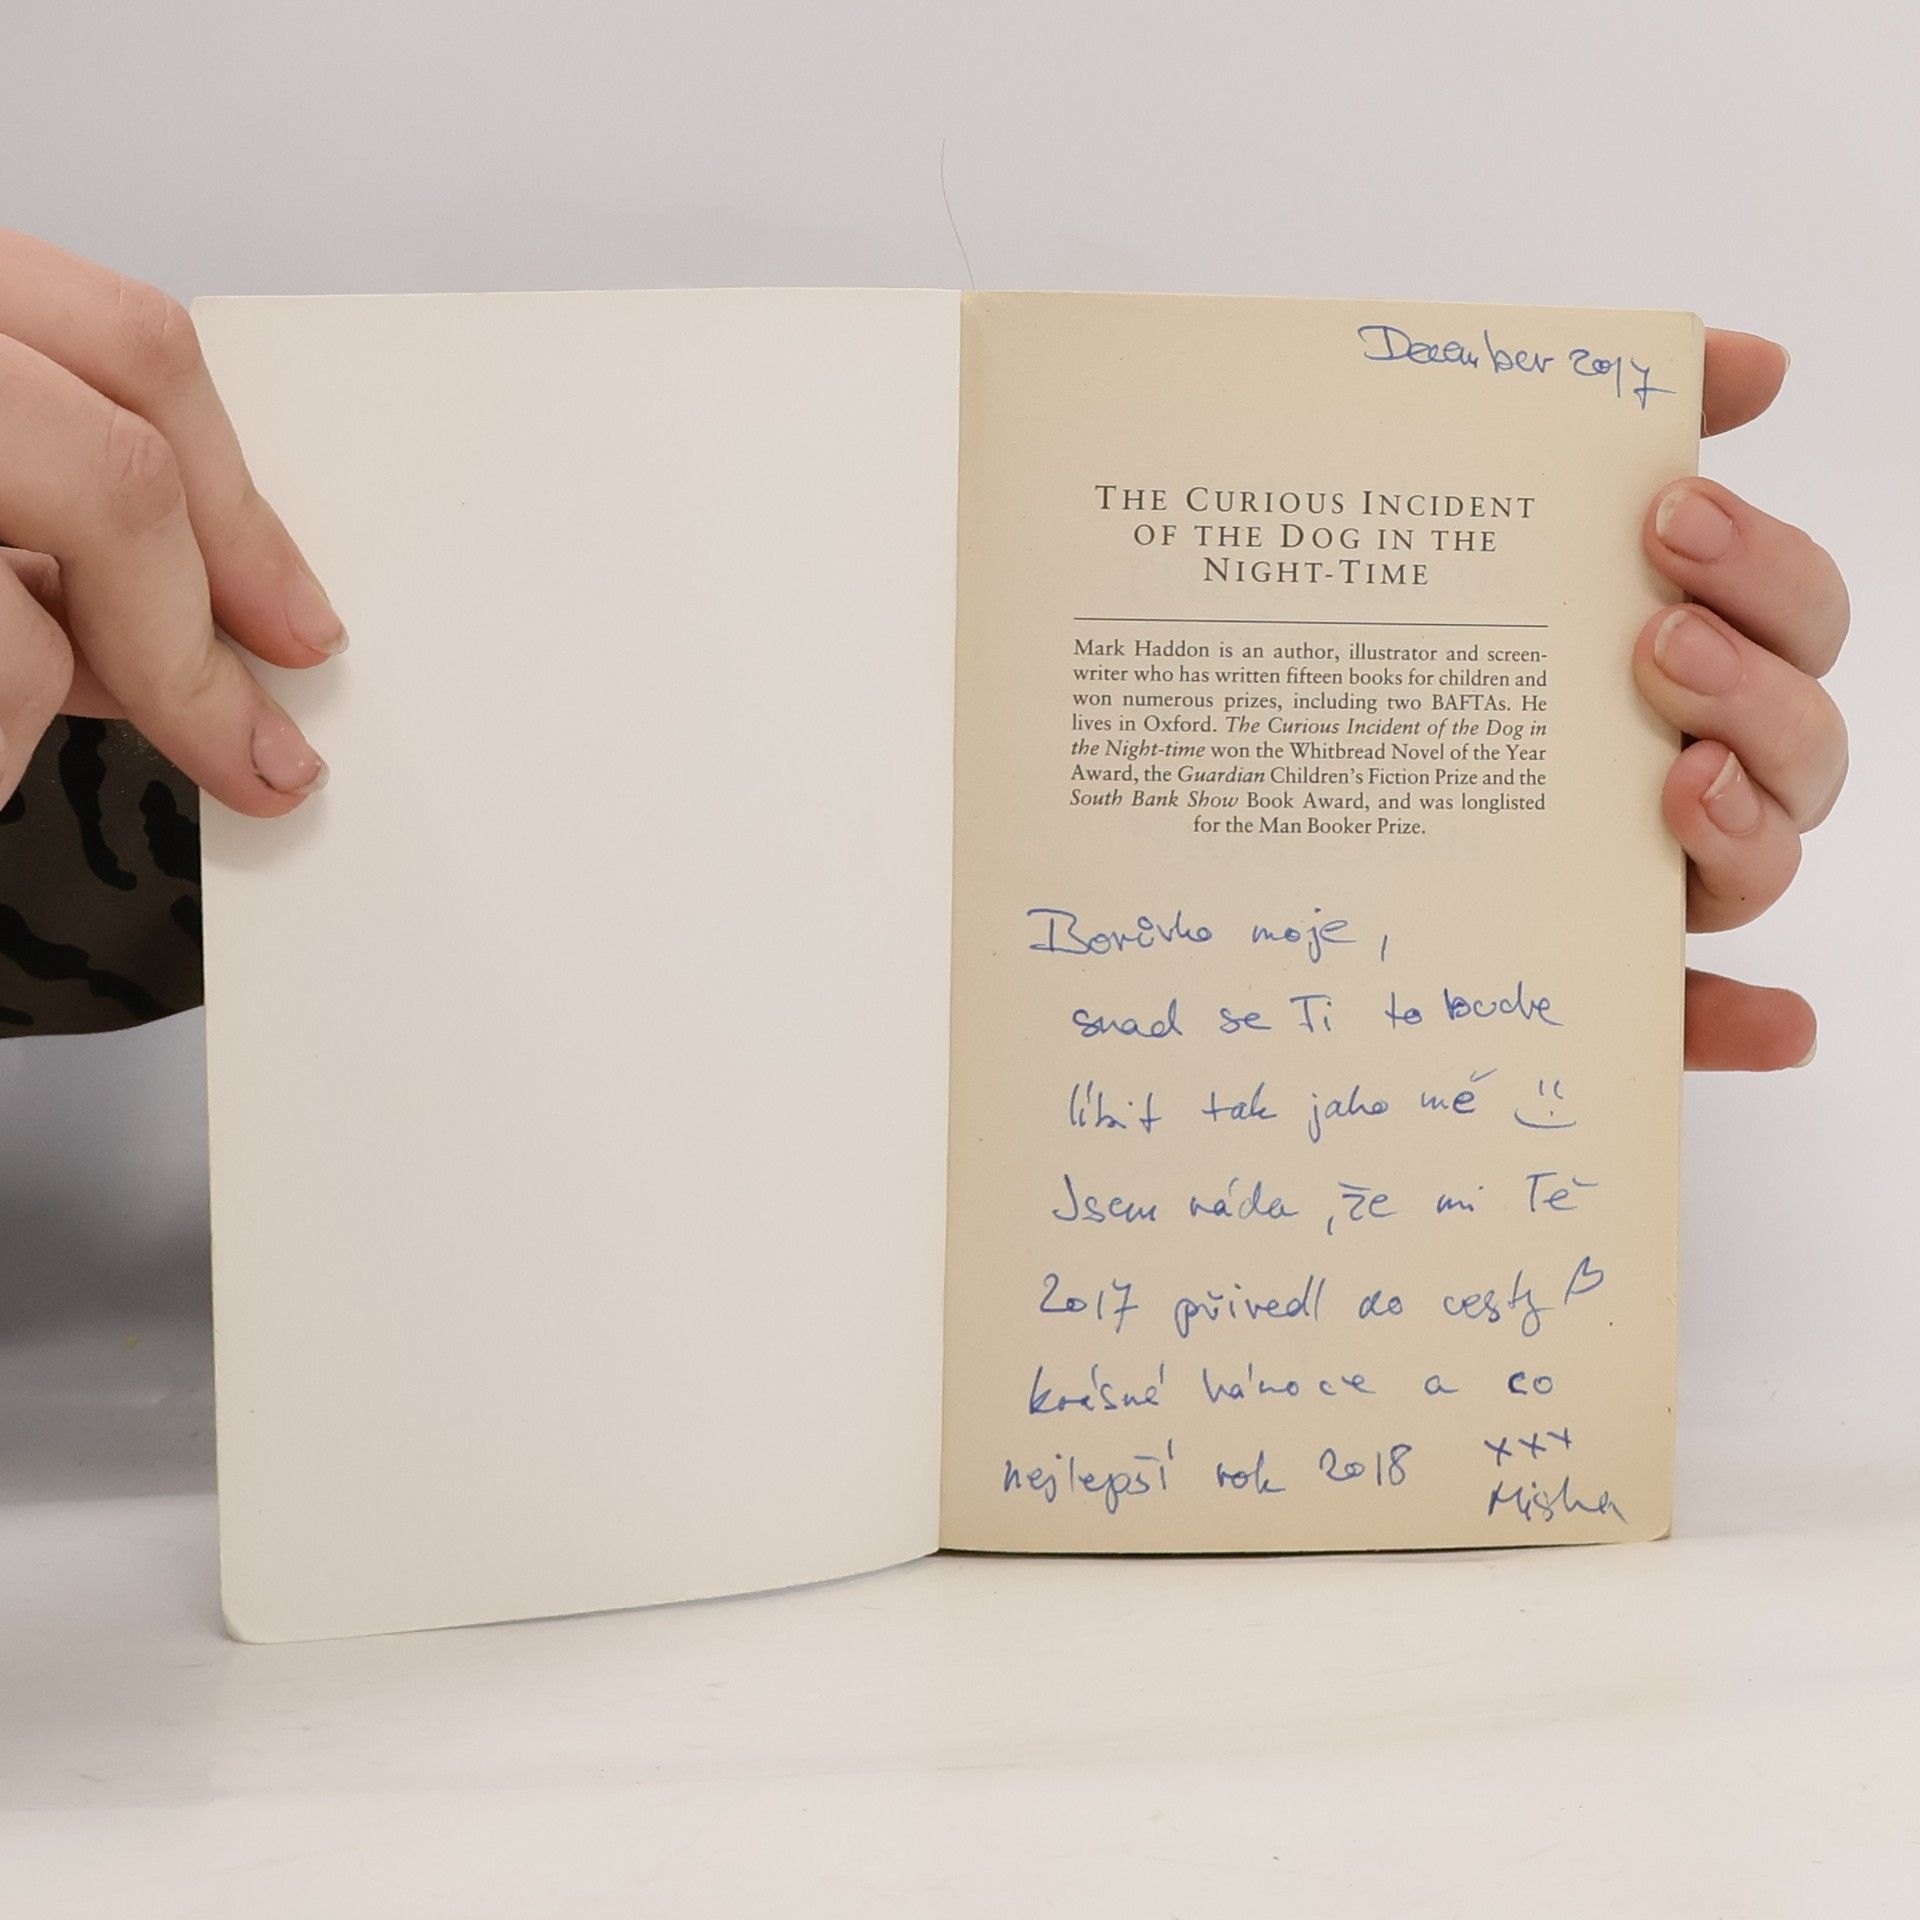 December 2017
THE CURIOUS INCIDENT
OF THE DOG IN THE
NIGHT-TIME
Mark Haddon is an author, illustrator and screen-
writer who has written fifteen books for children and
won numerous prizes, including two BAFTAs. He
lives in Oxford. The Curious Incident of the Dog in
the Night-time won the Whitbread Novel of the Year
Award, the Guardian Children's Fiction Prize and the
South Bank Show Book Award, and was longlisted
for the Man Booker Prize.
Borůvko moje,
snad se Ti to bude
líbit tak jako mě
Jsem ráda, že mi Tě
2017 přivedl do cesty
krásné vánoce a co
nejlepší rok 2018 xxx
Misha